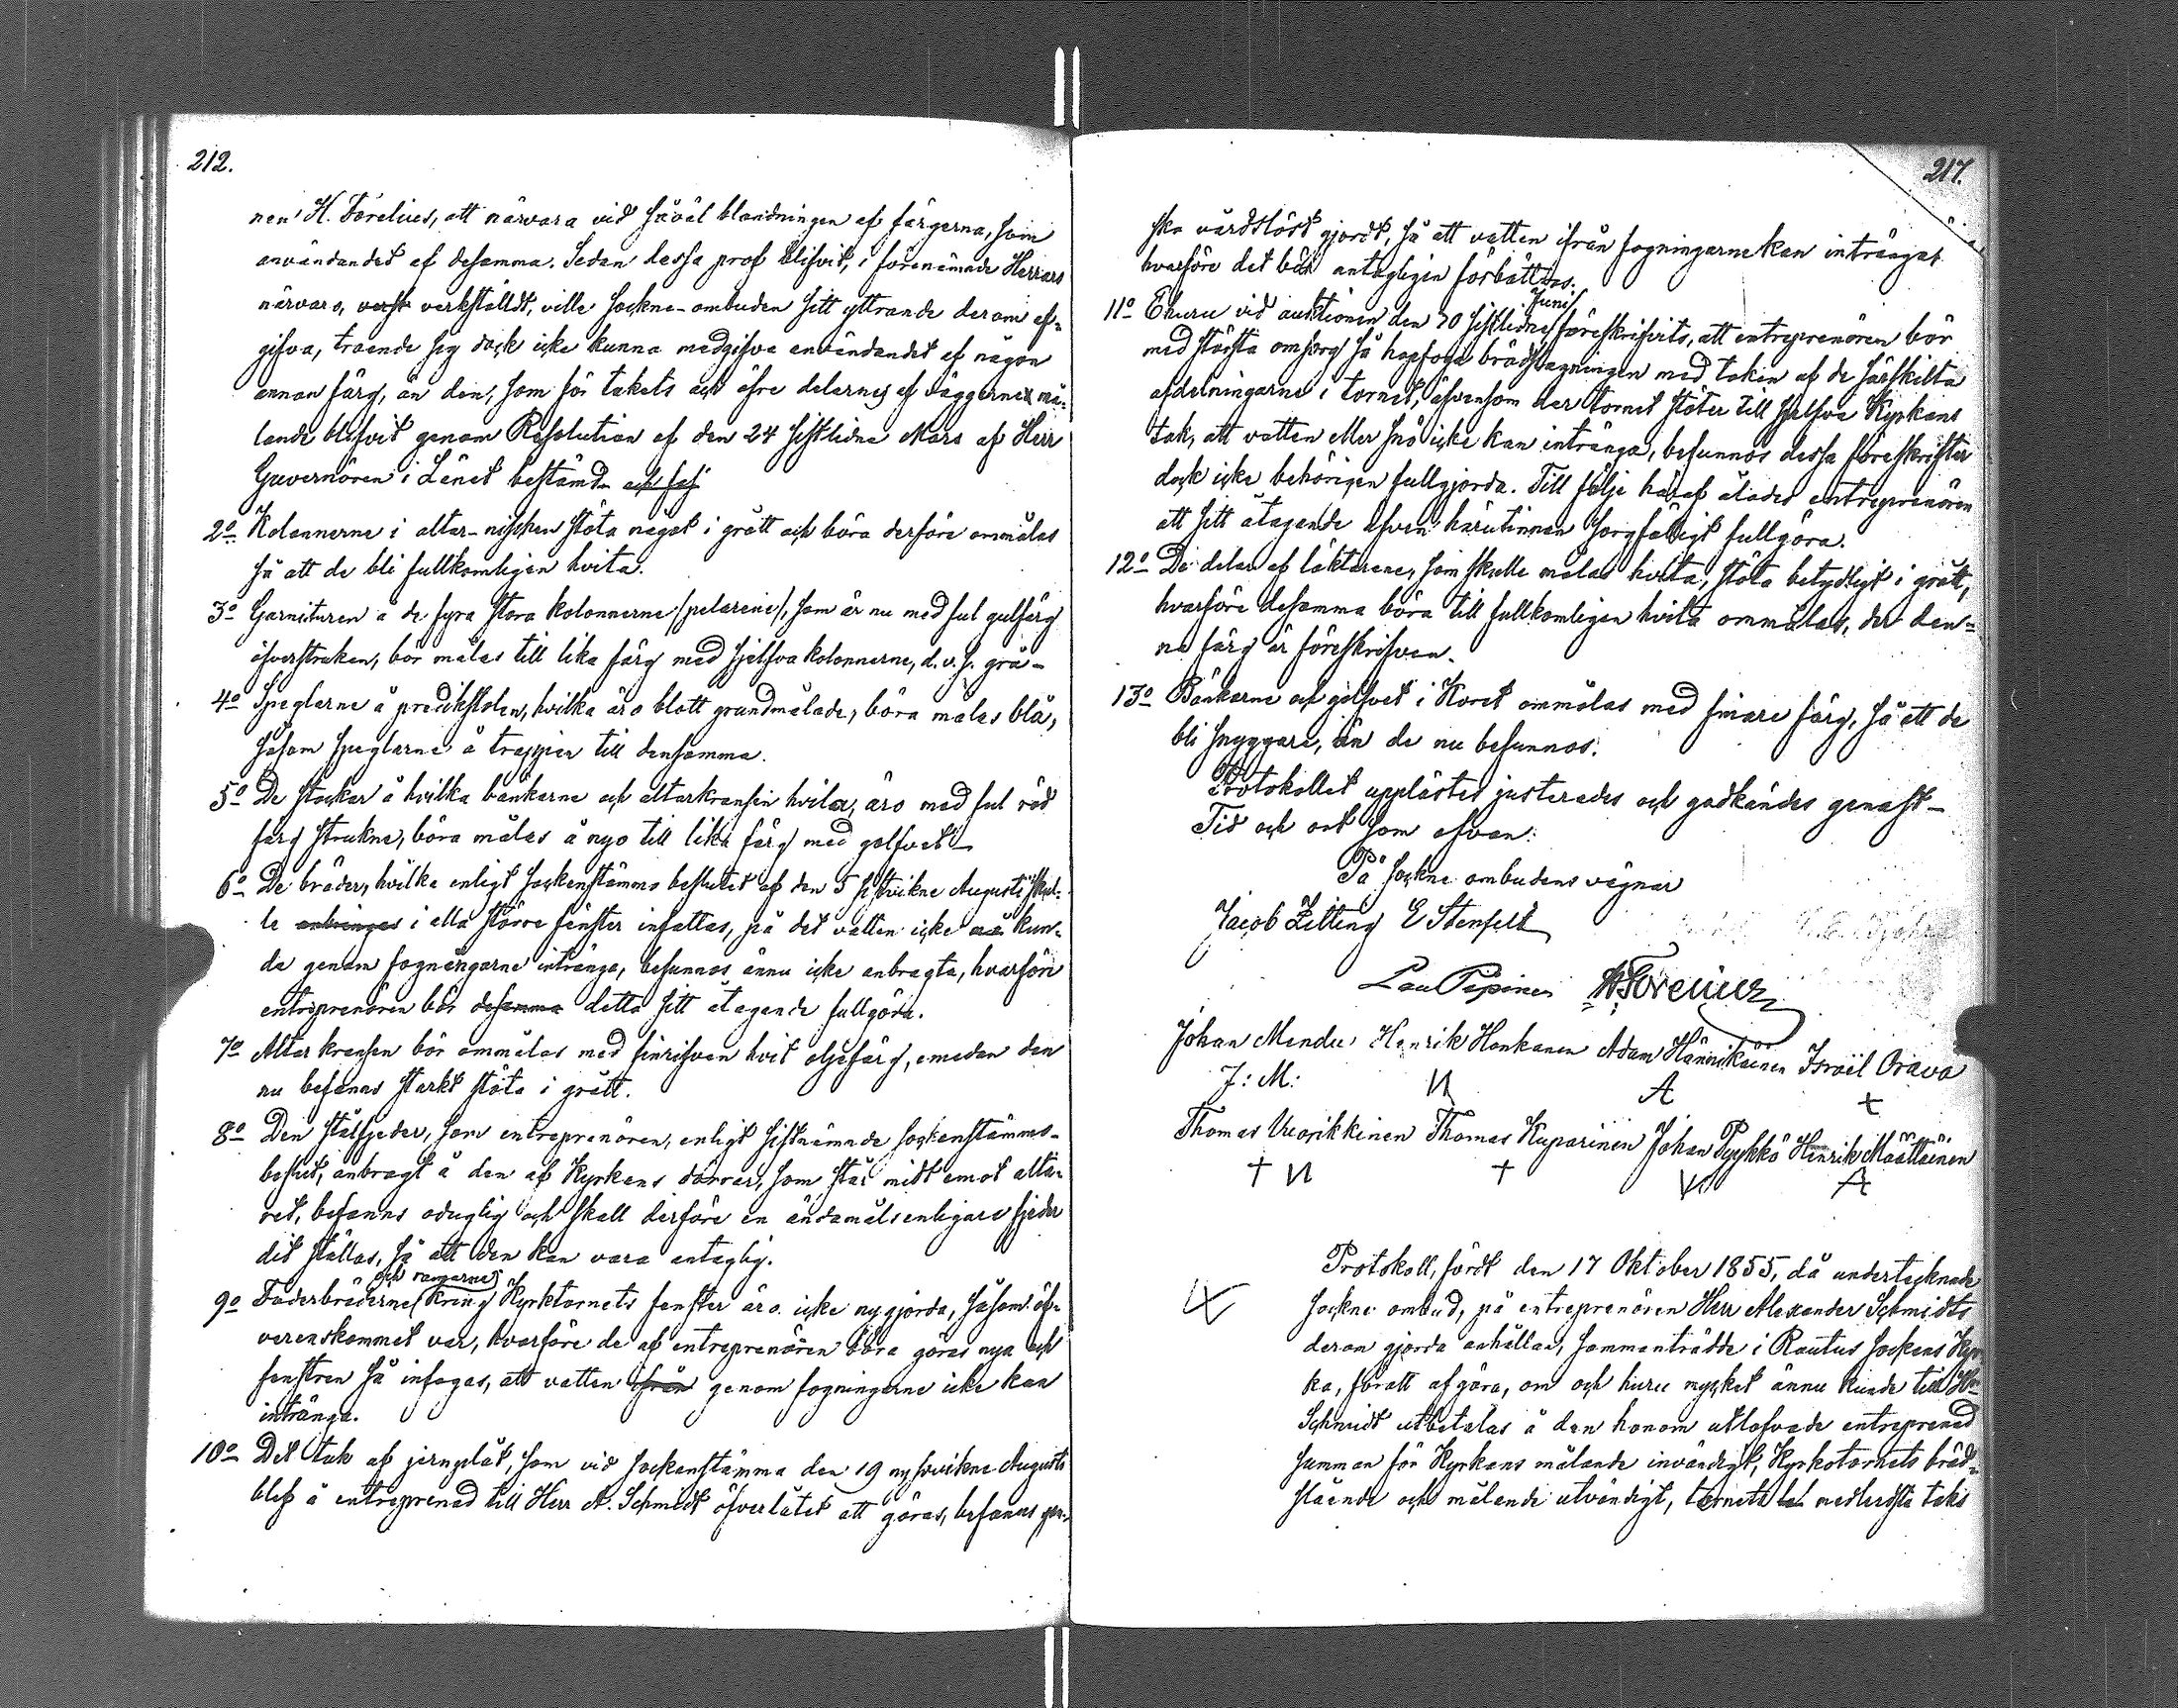 212.
nen H. Forelius, att närvara vid såväl blandningen af färgerna, som
användandet af desamma. Sedan dessa prof blifvit, i förenämnde Herrars
närvaro, verkställdt, ville sockne-ombuden sitt yttrande derom af-
gifva, troende sig dock icke kunna medgifva användandet af någon
annan färg, än den, som för takets och öfre delarnes af väggerne må-
lande blifvit genom Resolution af den 24 sistledne Mars af Herr
Guvernören i Länet bestämd
2o Kolonnerne i altar-nischen stöta något i grått och böra derföre ommålas
så att de bli fullkomligen hvita.
3o Garnituren å de fyra stora kolonnerne (pelarene), som är nu med ful gulfärg
öfverstruken, bör målas till lika färg med sjelfva kolonnerne, d. v. s. grå-
4o Speglarne å predikstolen, hvilka äro blott grundmålade, böra målas blå,
såsom speglarne å trappen till densamma.
5o De stockar å hvilka bänkarne och altarkransen hvila, äro med ful röd
färg strukne, böra målas å nyo till lika färg med golfvet-
6o De bräder, hvilka enligt sockenstämmo beslutet af den 5 sistvikne Augusti skul-
le anbringas i alla större fönster infattas, på det vatten icke må kun-
de genom fogningarne intränga, befunnos ännu icke anbragta, hvarföre
entreprenören bör desamma detta sitt åtagande fullgöra.
7o Altarkransen bör ommålas med finrifven hvit oljefärg, emedan den
nu befanns starkt stöta i grått.
8o Den stålfjeder, som entreprenören, enligt sistnämnde sockenstämmo-
beslut, anbragt å den af Kyrkans dörrar, som står midt emot alta-
ret, befanns oduglig och skall derföre en ändamålsenligare fjeder
dit ställas, så att den kan vara antaglig.
och ramarne
9o Foderbräderne kring Kyrktornets fenster äro icke nygjorda, såsom öf-
verenskommet var, hvarföre de af entreprenören böra göras nya och
fenstren så infogas, att vatten ifrån genom fogningarne icke kan
intränga.
10o Det tak af jernplåt, som vid sockenstämma den 19 nysvikne Augusti
blef å entreprenad till Herr A. Schmidt öfverlåtet att göras, befanns gan-
217.
ska vårdslöst gjordt, så att vatten ifrån fogningarne kan intränga
hvarföre det bör antagligen förbättras.
Juni
11o Ehuru vid auktionen den 30 sistledne föreskrifvits, att entreprenören bör
med största omsorg så hopfoga brädslagningen med taken af de särskilta
afdelningarne i tornet, äfvensom der tornet stöter till sjelfva Kyrkans
tak, att vatten eller snö icke kan intränga, befunnos dessa föreskrifter
dock icke behörigen fullgjorda. Till följe häraf ålades entreprenören
att sitt åtagande äfven härutinnan sorgfälligt fullgöra.
12o De delar af läktarene, som skulle målas hvita, stöta betydligt i grått,
hvarföre desamma böra till fullkomligen hvita ommålas, der den-
na färg är föreskrifven.
13o Bänkarne och golfvet i Koret ommålas med finare färg, så att de
bli snyggare, än de nu befunnos.
Protokollet upplästes justerades och godkändes genast-
Tid och ort som ofvan.
På sockne ombudens vägnar
Jacob Zitting E Stenfelt
Lau Pipinen H Forelius
Johan Mendu Henrik Honkanen Adam Hännikäinen Israël Orava
J: M: N A +
Thomas Vuorikkinen Thomas Kuparinen Johan Pyykkö Henrik Määttäinen
+ N + A
Protokoll, fördt den 17 Oktober 1855, då undertecknade
sockne ombud, på entreprenören Herr Alexander Schmidts
derom gjorda anhållan, sammanträdde i Rautus sockens Kyr
ka, för att afgöra, om och huru mycket ännu kunde till Hrr
Schmidt utbetalas å den honom utlofvade entreprenad
summan för Kyrkans målande invändigt, Kyrkotornets bräd-
slående och målande utvändigt, tornets nedersta taks